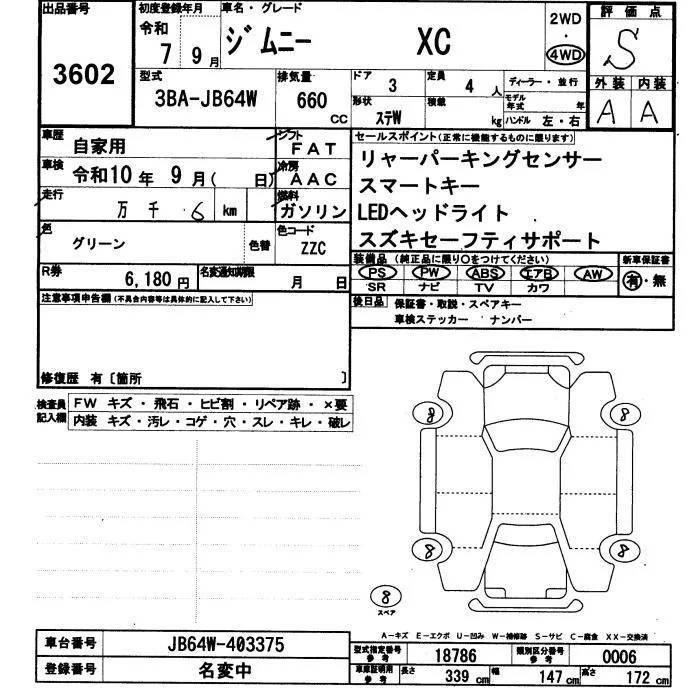 出品番号
3602
初度登録年月
令和
7 9月
車名・グレード
ジムニー XC
2WD
・
4WD
評価点
S
外装 内装
A A
型式
3BA-JB64W
排気量
660 CC
ドア
3
定員
4 人
ディーラー・並行
形状
ステW
積載
kg
モデル年式
年
ハンドル 左・右
車歴
自家用
シフト
FAT
車検
令和10年 9月( 日)
冷房
AAC
走行
万 千 6 km
燃料
ガソリン
色
グリーン
色替
色コード
ZZC
R券
6,180円
名変通知期限
月 日
セールスポイント(正常に機能するものに限ります)
リャーパーキングセンサー
スマートキー
LEDヘッドライト
スズキセーフティサポート
装備品 (純正品に限り○をつけてください)
PS PW ABS エアB AW
SR ナビ TV カワ
新車保証書
有・無
後日品
保証書・取説・スペアキー
車検ステッカー ナンバー
注意事項申告欄(不具合内容等は具体的に記入して下さい)
修復歴 有〔箇所 〕
検査員記入欄
FW キズ・飛石・ヒビ割・リペア跡・×要
内装 キズ・汚レ・コゲ・穴・スレ・キレ・破レ
8 8
8 8
8
スペア
A-キズ E-エクボ U-凹み W-補修跡 S-サビ C-腐食 XX-交換済
車台番号
JB64W-403375
登録番号
名変中
型式指定番号
参考
18786
類別区分番号
参考
0006
車庫証明用
参考
長さ
339 cm
幅
147 cm
高さ
172 cm